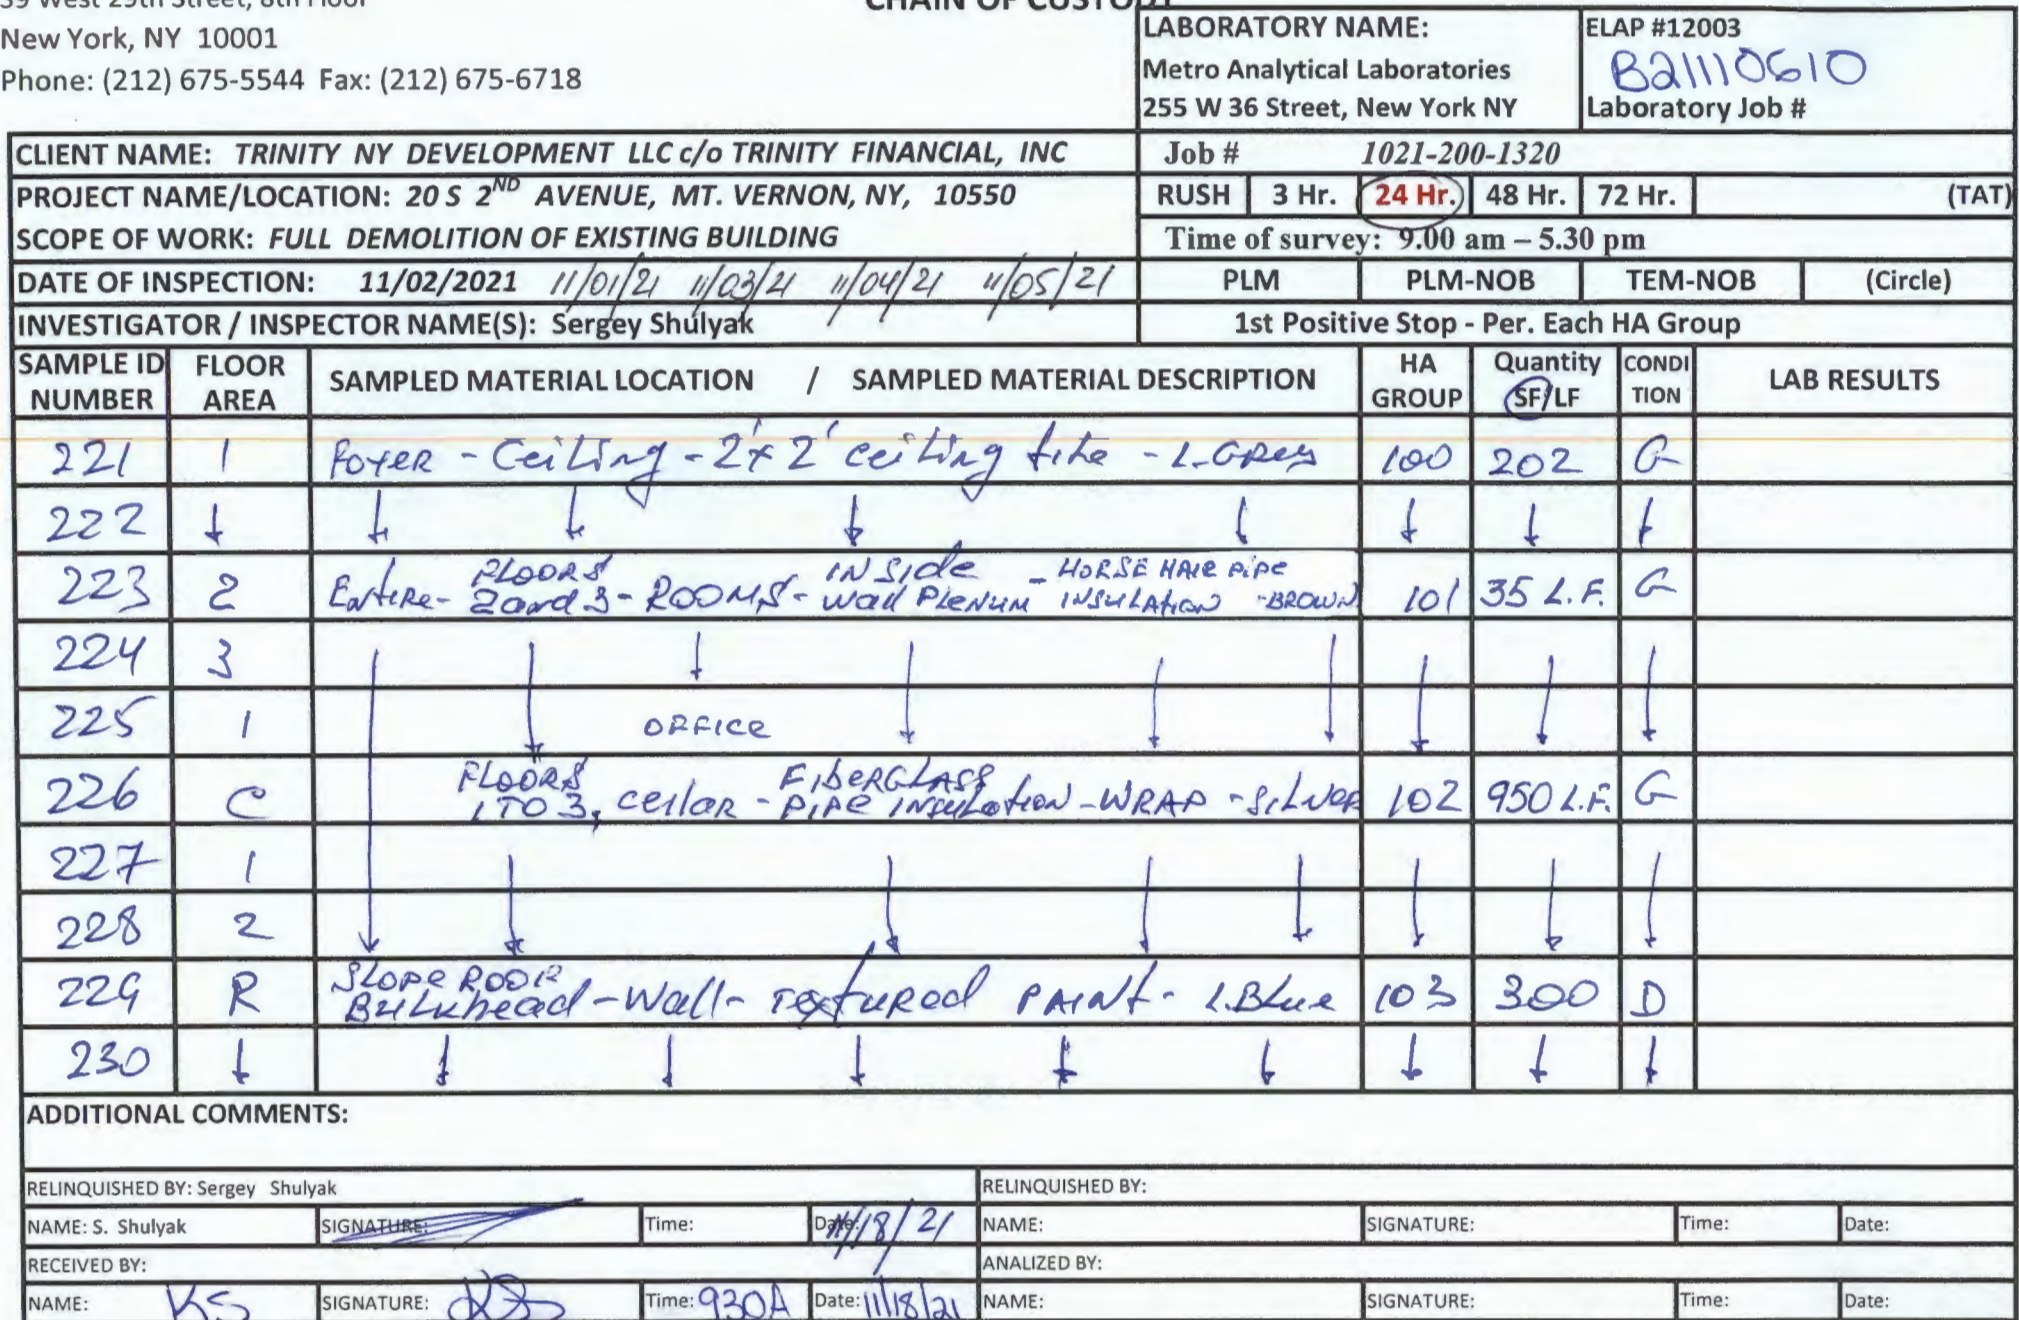 New York, NY 10001
Phone: (212) 675-5544 Fax: (212) 675-6718
CHAIN OF CUSTODY
LABORATORY NAME:
Metro Analytical Laboratories
255 W 36 Street, New York NY
ELAP #12003
B21110610
Laboratory Job #
CLIENT NAME: TRINITY NY DEVELOPMENT LLC c/o TRINITY FINANCIAL, INC
Job # 1021-200-1320
PROJECT NAME/LOCATION: 20 S 2ND AVENUE, MT. VERNON, NY, 10550
RUSH 3 Hr. 24 Hr. 48 Hr. 72 Hr. (TAT)
SCOPE OF WORK: FULL DEMOLITION OF EXISTING BUILDING
Time of survey: 9.00 am – 5.30 pm
DATE OF INSPECTION: 11/02/2021 11/01/21 11/03/21 11/04/21 11/05/21
PLM PLM-NOB TEM-NOB (Circle)
INVESTIGATOR / INSPECTOR NAME(S): Sergey Shulyak
1st Positive Stop - Per. Each HA Group
SAMPLE ID NUMBER FLOOR AREA SAMPLED MATERIAL LOCATION / SAMPLED MATERIAL DESCRIPTION HA GROUP Quantity SF/LF CONDI TION LAB RESULTS
221 1 Foyer - Ceiling - 2'x2' ceiling tile - L.Grey 100 202 G
222 ↓ ↓ ↓ ↓ ↓ ↓ ↓ ↓
223 2 Entire - FLOORS 2 and 3 - ROOMS - INSide wall Plenum - HORSE HAIR PIPE INSULATION - BROWN 101 35 L.F. G
224 3 ↓ ↓ ↓ ↓ ↓ ↓ ↓ ↓ ↓
225 1 OFFICE
226 C FLOORS 1 TO 3, cellar - FIBERGLASS PIPE INSULATION - WRAP - SILVER 102 950 L.F. G
227 1 ↓ ↓ ↓ ↓ ↓ ↓ ↓
228 2
229 R SLOPE ROOF Bulkhead - Wall - Textured PAINT - L.Blue 103 300 D
230 ↓ ↓ ↓ ↓ ↓ ↓ ↓ ↓ ↓
ADDITIONAL COMMENTS:
RELINQUISHED BY: Sergey Shulyak RELINQUISHED BY:
NAME: S. Shulyak SIGNATURE: Time: Date: 11/18/21 NAME: SIGNATURE: Time: Date:
RECEIVED BY: ANALIZED BY:
NAME: KS SIGNATURE: Time: 930A Date: 11/18/21 NAME: SIGNATURE: Time: Date: